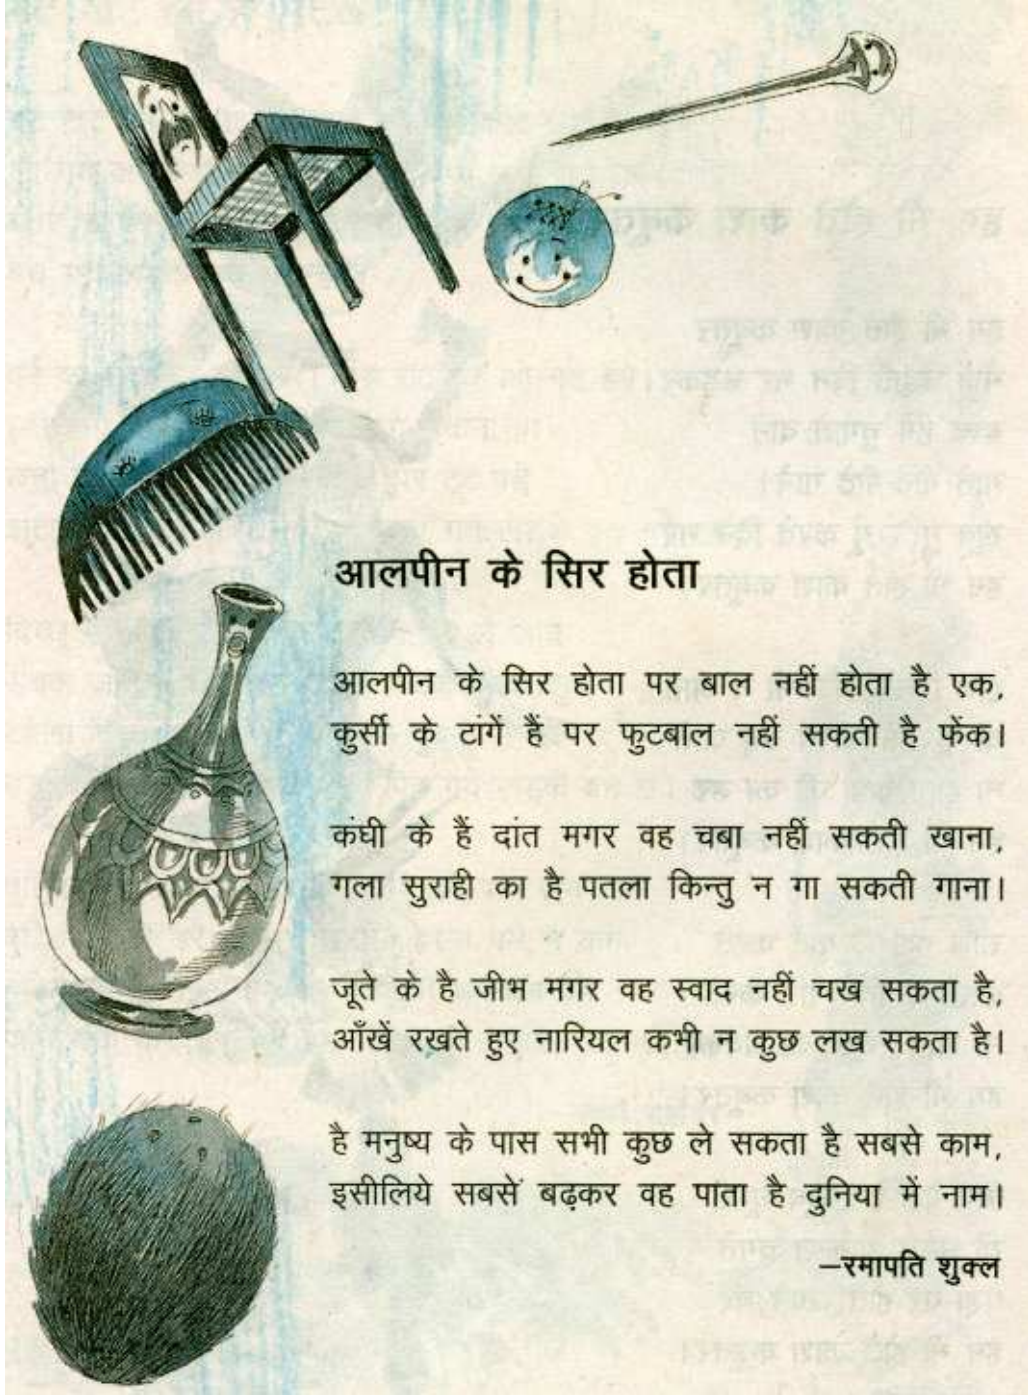 आलपीन के सिर होता
आलपीन के सिर होता पर बाल नहीं होता है एक,
कुर्सी के टांगें हैं पर फुटबाल नहीं सकती है फेंक।
कंघी के हैं दांत मगर वह चबा नहीं सकती खाना,
गला सुराही का है पतला किन्तु न गा सकती गाना।
जूते के है जीभ मगर वह स्वाद नहीं चख सकता है,
आँखें रखते हुए नारियल कभी न कुछ लख सकता है।
है मनुष्य के पास सभी कुछ ले सकता है सबसे काम,
इसीलिये सबसे बढ़कर वह पाता है दुनिया में नाम।
–रमापति शुक्ल